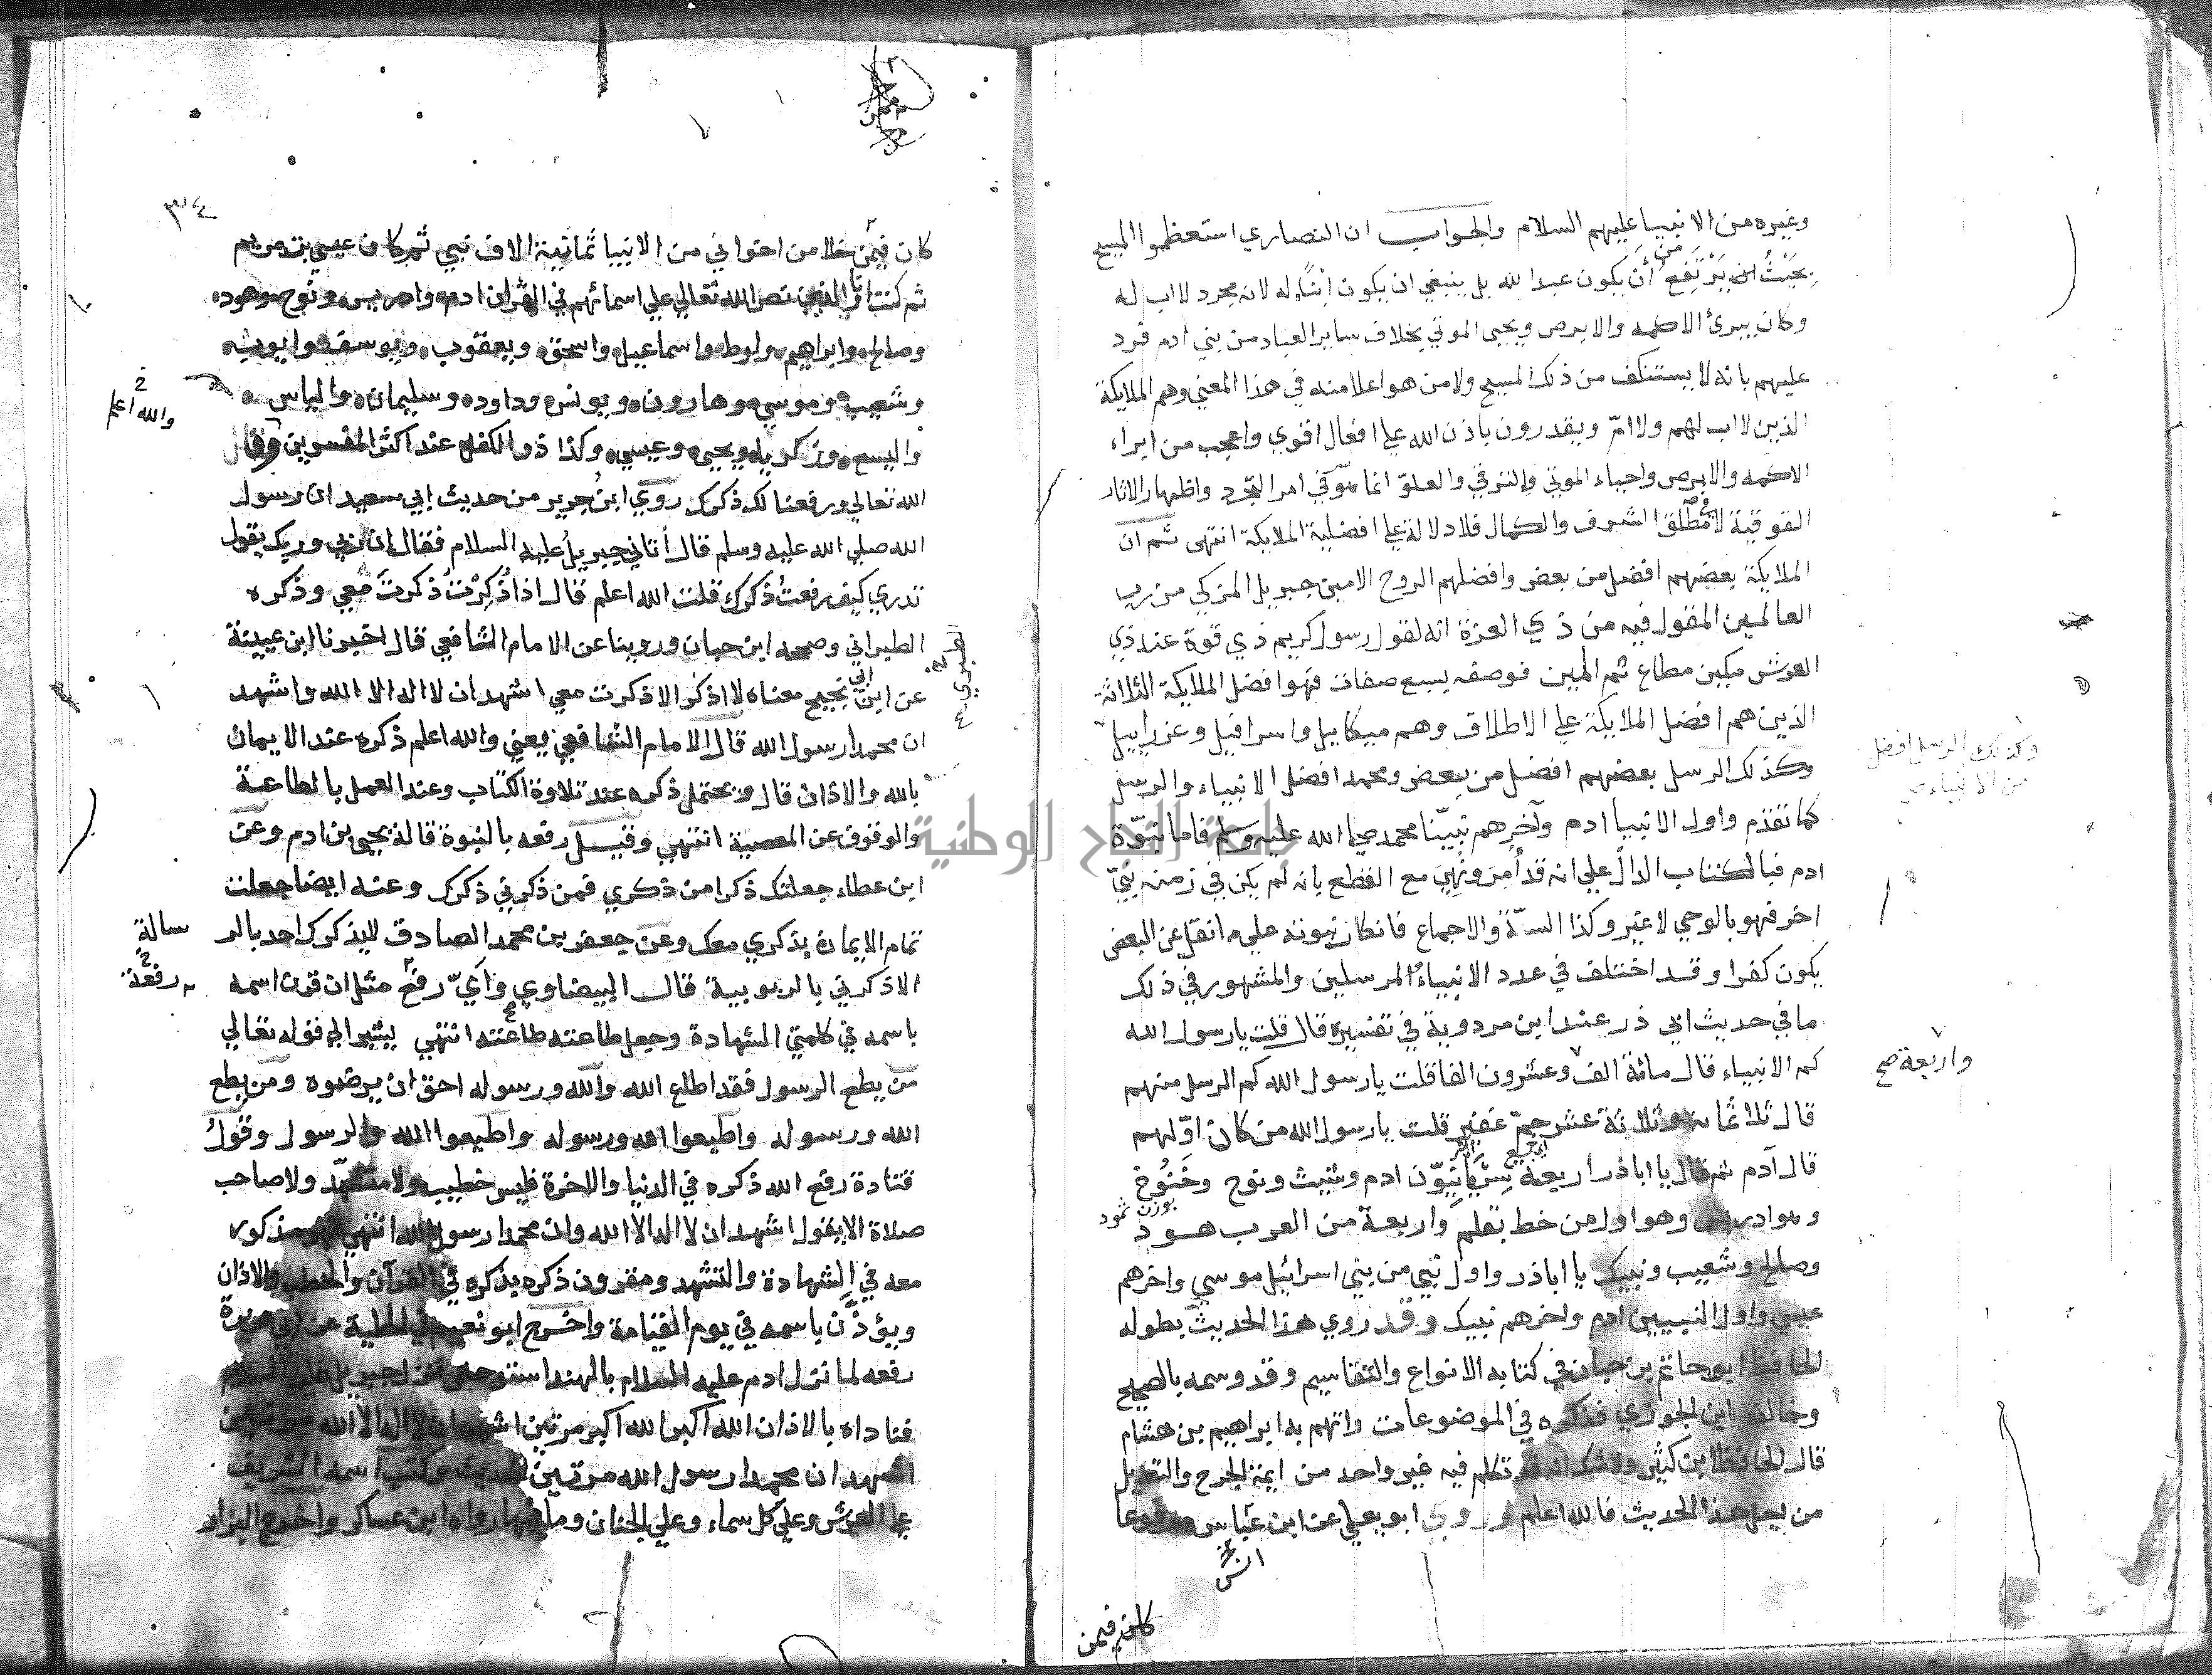 وغيره من الانبيا عليهم السلام والجواب ان النصاري استعظموا المسيح
بحيث يرتفع من أن يكون عبدا لله بل ينبغي ان يكون ابنا له لانه مجرد لا اب له
وكان يبرئ الاكمه والابرص ويحيى الموتي بخلاف ساير العباد من بني ادم فرد
عليهم بانه لا يستنكف من ذلك المسيح ولا من هو اعلا منه في هذا المعني وهم الملايكة
الذين لا اب لهم ولا امّ ويقدرون باذن الله علي افعال اقوي واعجب من ابراء
الاكمه والابرص واحياء الموتي والترقي والعلوّ انما هو في امر التجرد واظهار الاثار
القوية لا في مطلق الشرف والكمال فلا دلالة علي افضلية الملايكة انتهى ثم ان
الملايكة بعضهم افضل من بعض وافضلهم الروح الامين جبريل المزكي من رب
العالمين المقول فيه من ذي العزة انه لقول رسول كريم ذي قوة عند ذي
العرش مكين مطاع ثم امين فوصفه بسبع صفات فهو افضل الملايكة الثلاثة
الذين هم افضل الملايكة علي الاطلاق وهم ميكاييل واسرافيل وعزراييل
وكذلك الرسل بعضهم افضل من بعض ومحمد افضل الانبياء والرسل
وكذلك الرسل افضل
من الانبياء صح
كما تقدم واول الانبيا ادم وآخرهم نبيّنا محمد صلي الله عليه وسلم فاما نبوّة
ادم فبالكتاب الدالّ علي انه قد أُمر ونُهِي مع القطع بانه لم يكن في زمنه نبيّ
اخر فهو بالوحي لا غير وكذا السنّة والاجماع فانكار نبوته علي ما نقل عن البعض
يكون كفرا وقد اختلف في عدد الانبياء المرسلين والمشهور في ذلك
ما في حديث ابي ذر عند ابن مردوية في تفسيره قال قلت يا رسول الله
كم الانبياء قال مائة الف وعشرون الفا قلت يا رسول الله كم الرسل منهم
واربعة صح
قال ثلاثمائة وثلاثة عشر جمّ غفير قلت يا رسول الله من كان اوّلهم
قال آدم ثم قال يا اباذر اربعة سريانيّون ادم وشيث ونوح وخَنُوخ
بوزن ثمود
وهو ادريس وهو اول من خط بقلم واربعة من العرب هود
وصالح وشعيب ونبيك يا اباذر واول نبي من بني اسرائيل موسي واخرهم
عيسي واول النبيين ادم واخرهم نبيك وقد روي هذا الحديث بطوله
الحافظ ابو حاتم بن حبان في كتابه الانواع والتقاسيم وقد وسمه بالصحيح
وخالفه ابن الجوزي فذكره في الموضوعات واتهم به ابراهيم بن هشام
قال الحافظ ابن كثير ولاشك انه قد تكلم فيه غير واحد من ايمة الجرح والتعديل
من اجل هذا الحديث فالله اعلم وروي ابو يعلي عن ابن عباس مرفوعا
انس
كان فيمن
٣٤
كان فيمن خلا من اخواني من الانبيا ثمانية الاف نبي ثم كان عيسي بن مريم
ثم كنت انا والذين نص الله تعالي علي اسمائهم في القران ادم وادريس ونوح وهود
وصالح وابراهيم ولوط واسماعيل واسحق ويعقوب ويوسف وايوب
وشعيب وموسي وهارون ويونس وداود وسليمان والياس
واليسع وزكريا ويحيى وعيسي وكذا ذو الكفل عند اكثر المفسرين وقال
والله اعلم
الله تعالي ورفعنا لك ذكرك روي ابن جرير من حديث ابي سعيد ان رسول
الله صلي الله عليه وسلم قال أتاني جبريل عليه السلام فقال ان ربي وربك يقول
تدري كيف رفعت ذكرك قلت الله اعلم قال اذا ذُكِرْتُ ذكرتَ معي وذكره
الطبراني وصححه ابن حبان وروينا عن الامام الشافعي قال اخبرنا ابن عيينة
عن ابن ابي نجيح معناه لا اذكر الا ذكرت معي اشهد ان لا اله الا الله واشهد
ان محمدا رسول الله قال الامام الشافعي يعني والله اعلم ذكره عند الايمان
بالله والاذان قال ويحتمل ذكره عند تلاوة الكتاب وعند العمل بالطاعة
والوقوف عن المعصية انتهي وقيل رفعه بالنبوة قاله يحيى بن ادم وعن
ابن عطاء جعلتك ذكرا من ذكري فمن ذكرني ذكرك وعنه ايضا جعلت
تمام الايمان بذكري معك وعن جعفر بن محمد الصادق لا يذكرك احد بالر
سالة
الا ذكرني بالربوبية قال البيضاوي وأيّ رفع مثل ان قرن اسمه
رفعة
باسمه في كلمتي الشهادة وجعل طاعته طاعته انتهي يشير الي قوله تعالي
من يطع الرسول فقد اطاع الله والله ورسوله احق ان يرضوه ومن يطع
الله ورسوله واطيعوا الله ورسوله واطيعوا الله والرسول وقول
قتادة رفع الله ذكره في الدنيا والاخرة فليس خطيب ولا متشهد ولا صاحب
صلاة الا يقول اشهد ان لا اله الا الله وان محمدا رسول الله انتهي فهو مذكور
معه في الشهادة والتشهد ومقرون ذكره بذكره في القرآن والخطب والاذان
ويؤذّن باسمه في يوم القيامة واخرج ابو نعيم في الحلية عن ابي هريرة
رفعه لما نزل ادم عليه السلام بالهند استوحش فنزل جبريل عليه السلام
فناداه بالاذان الله اكبر الله اكبر مرتين اشهد ان لا اله الا الله مرتين
اشهد ان محمدا رسول الله مرتين الحديث وكتب اسمه الشريف
علي العرش وعلي كل سماء وعلي الجنان وما فيها رواه ابن عساكر واخرج البزار
جامعة النجاح الوطنية